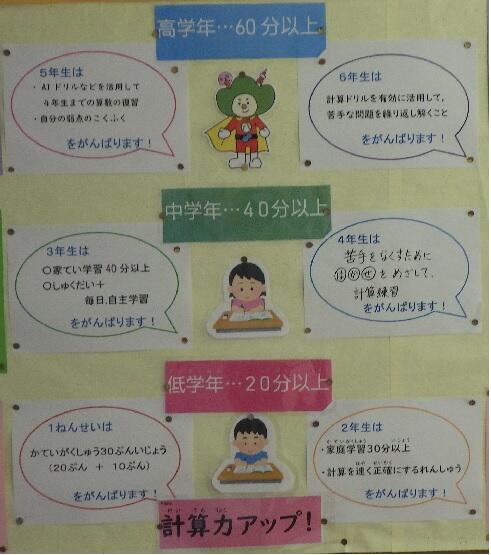 高学年…60分以上
5年生は
・AIドリルなどを活用して
4年生までの算数の復習
・自分の弱点のこくふく
をがんばります！
6年生は
計算ドリルを有効に活用して,
苦手な問題を繰り返し解くこと
をがんばります！
中学年…40分以上
3年生は
○家てい学習40分以上
○しゅくだい＋
毎日,自主学習
をがんばります！
4年生は
苦手をなくすために
はかせをめざして、
計算練習
をがんばります！
低学年…20分以上
1ねんせいは
かていがくしゅう30ぷんいじょう
（20ぷん ＋ 10ぷん）
をがんばります！
2年生は
・家庭学習30分以上
・計算を速く正確にするれんしゅう
をがんばります！
計算力アップ！